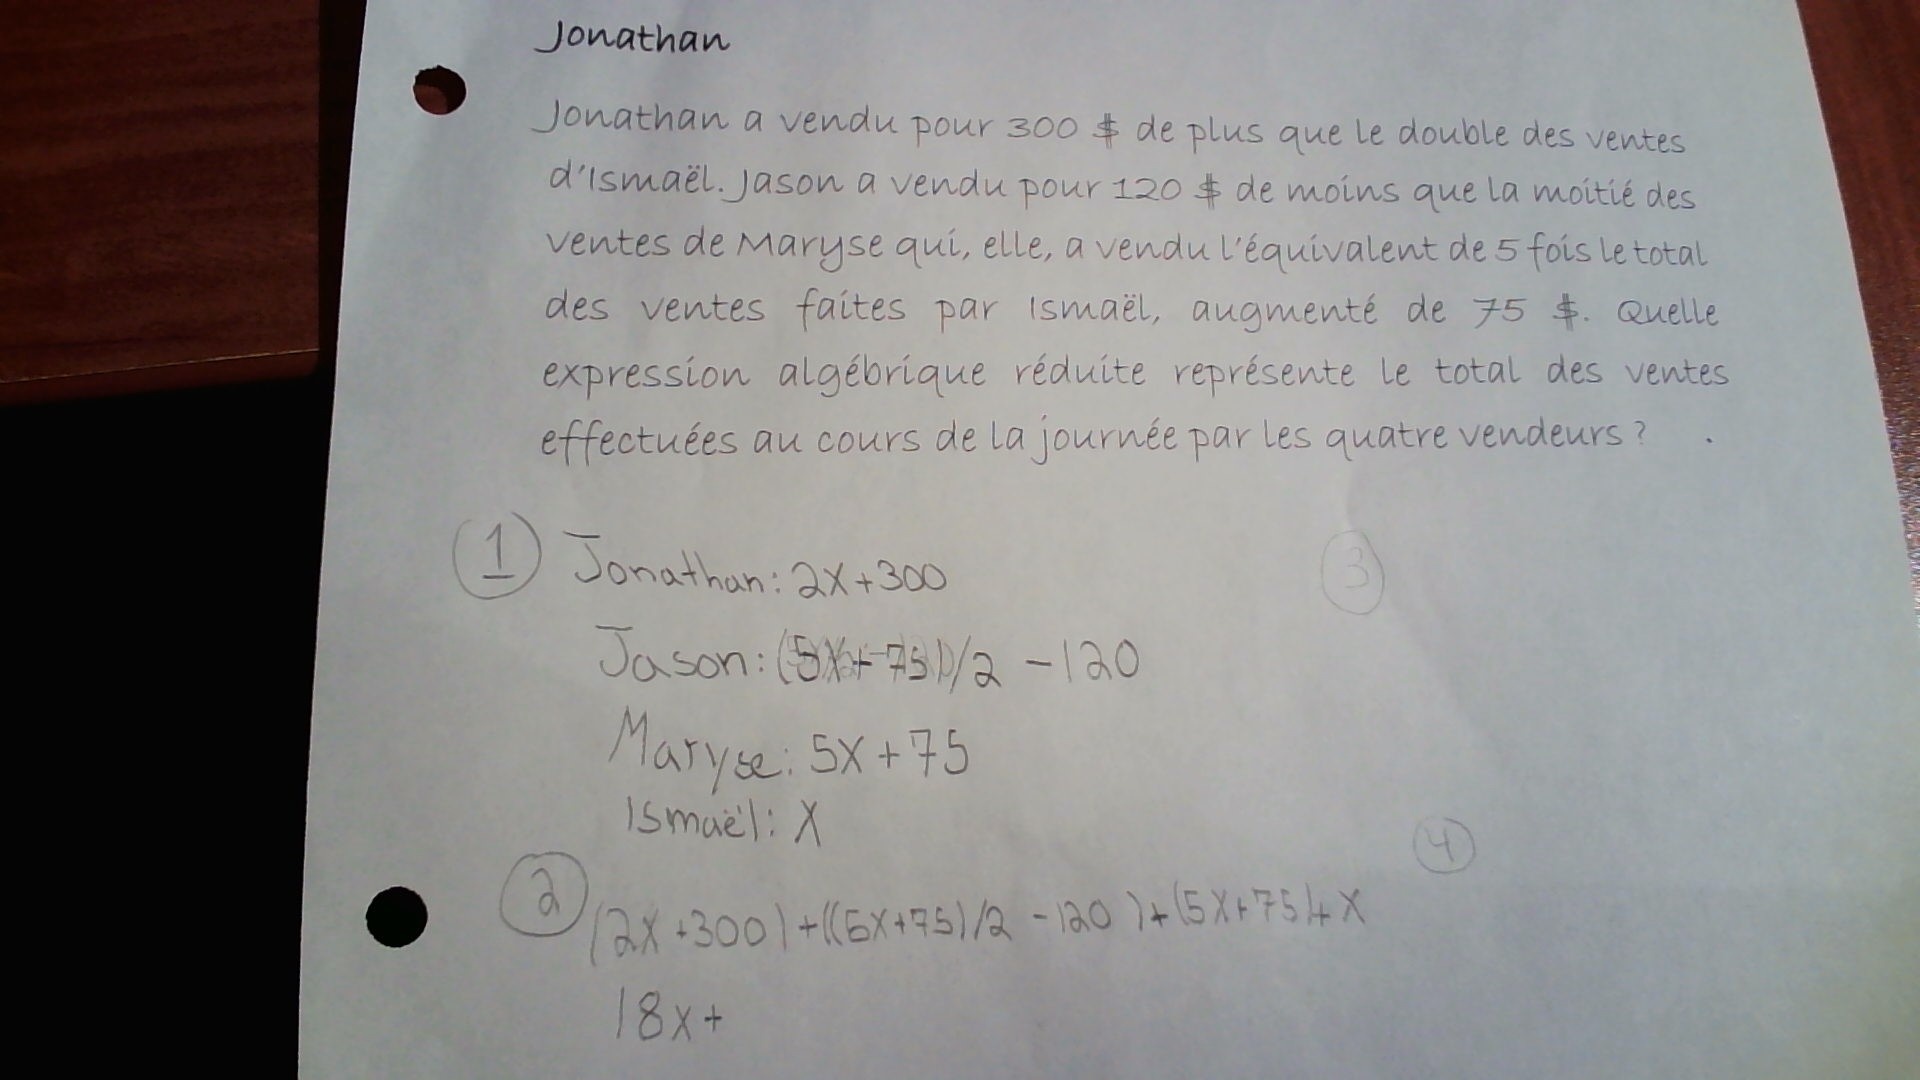 Jonathan
Jonathan a vendu pour 300 $ de plus que le double des ventes
d'Ismaël. Jason a vendu pour 120 $ de moins que la moitié des
ventes de Maryse qui, elle, a vendu l'équivalent de 5 fois le total
des ventes faites par Ismaël, augmenté de 75 $. Quelle
expression algébrique réduite représente le total des ventes
effectuées au cours de la journée par les quatre vendeurs ?
1 Jonathan: 2x+300
Jason: (5x+75)/2 -120
Maryse: 5x+75
Ismaël: x
2 (2x+300)+((5x+75)/2 -120)+(5x+75)+x
18x+
3
4